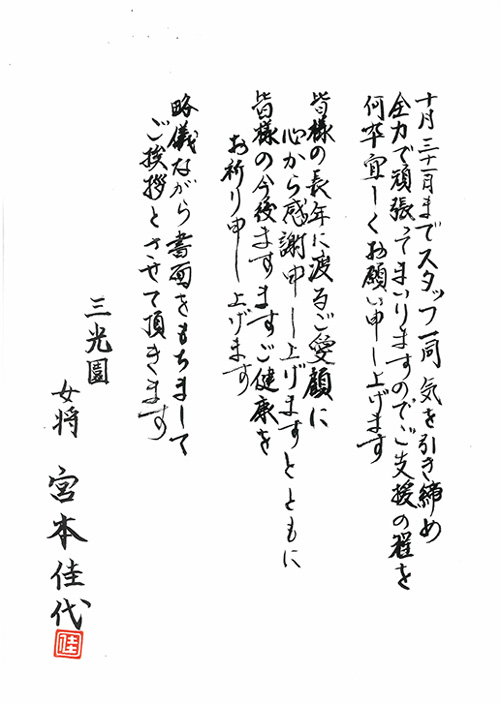 十月三十一日までスタッフ一同 気を引き締め
全力で頑張ってまいりますのでご支援の程を
何卒宜しくお願い申し上げます
皆様の長年に渡るご愛顧に
心から感謝申し上げますとともに
皆様の今後ますますご健康を
お祈り申し上げます
略儀ながら書面をもちまして
ご挨拶とさせて頂きます
三光園
女将 宮本佳代
佳